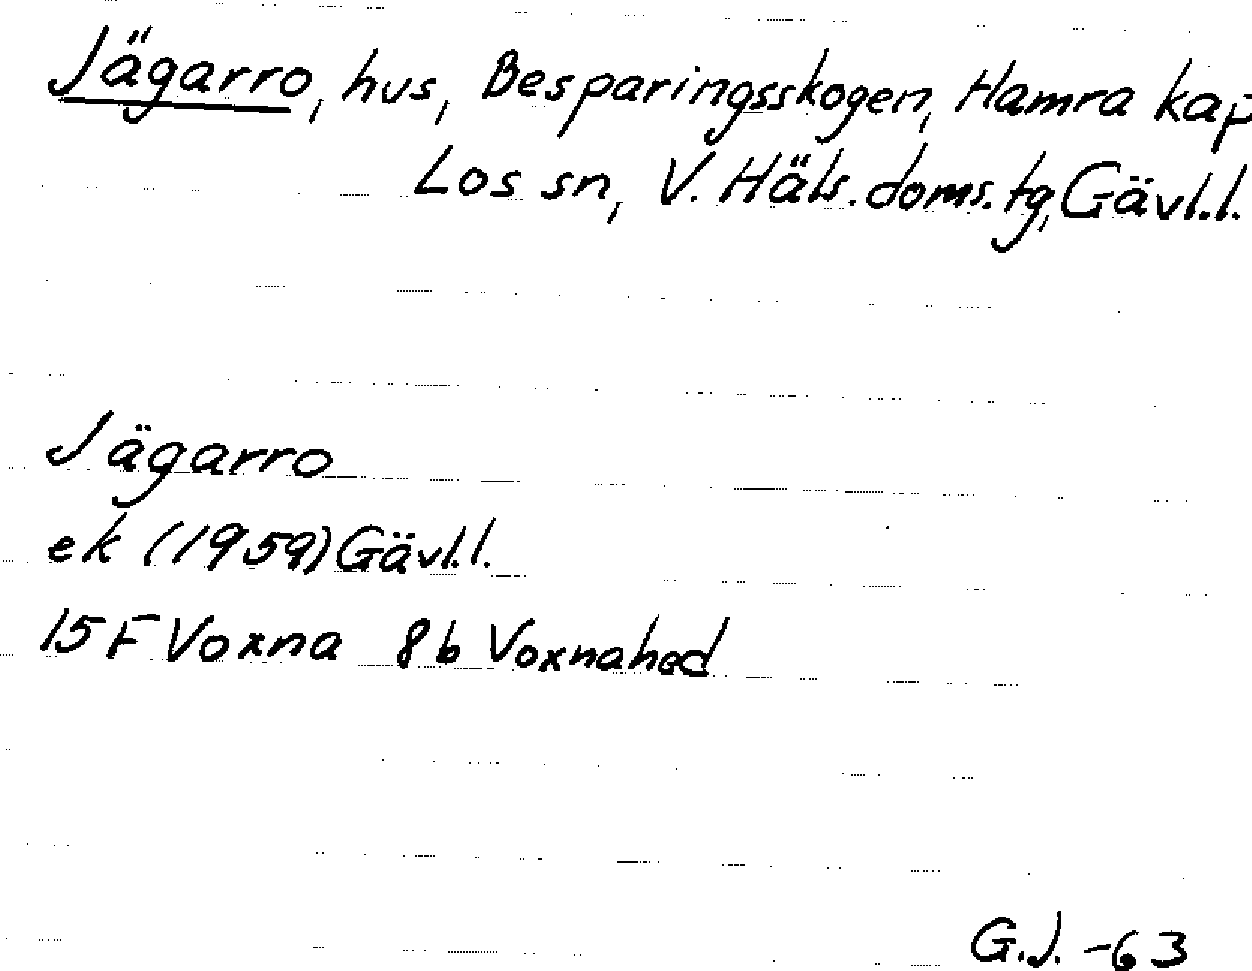 Jägarro, hus, Besparingsskogen, Hamra kap
Los sn, V. Häls. doms. tg, Gävl.l.
Jägarro
ek (1959) Gävl.l.
15 F Voxna 8b Voxnahed
G.J. -63